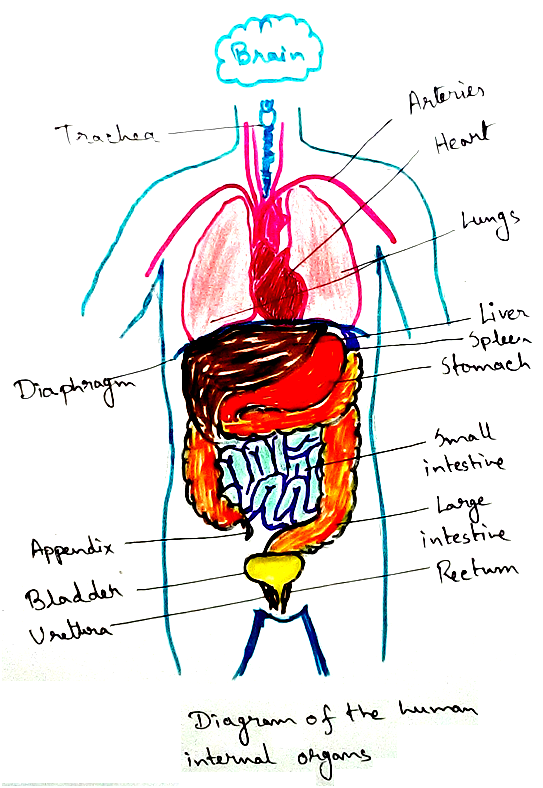 Brain
Arteries
Trachea
Heart
Lungs
Liver
Spleen
Stomach
Diaphragm
Small
intestive
Large
intestive
Appendix
Rectum
Bladder
Urethra
Diagram of the human
internal organs